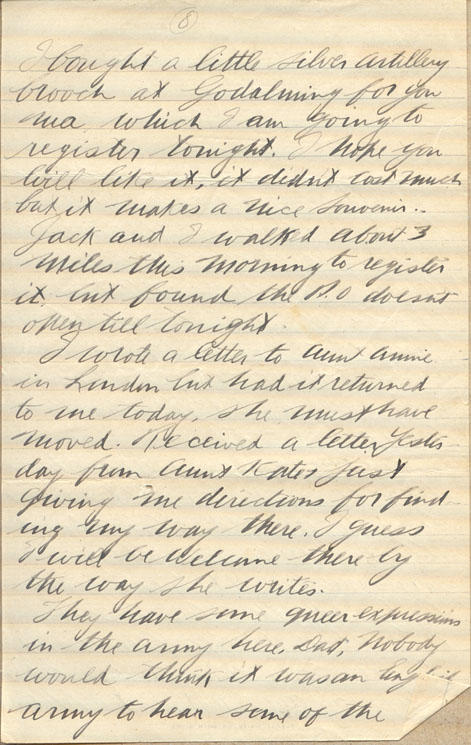 8
I bought a little silver artillery
brooch at Godalming for you
ma, which I am going to
register tonight. I hope you
will like it, it didn't cost much
but it makes a nice souvenir.
Jack and I walked about 3
miles this morning to register
it but found the P.O doesn't
open till tonight.
I wrote a letter to Aunt Annie
in London but had it returned
to me today, she must have
moved. Received a letter yester
day from Aunt Kates just
giving me directions for find
ing my way there. I guess
I will be welcome there by
the way she writes.
They have some queer expressions
in the army here, Dad, Nobody
would think it was an English
army to hear some of the